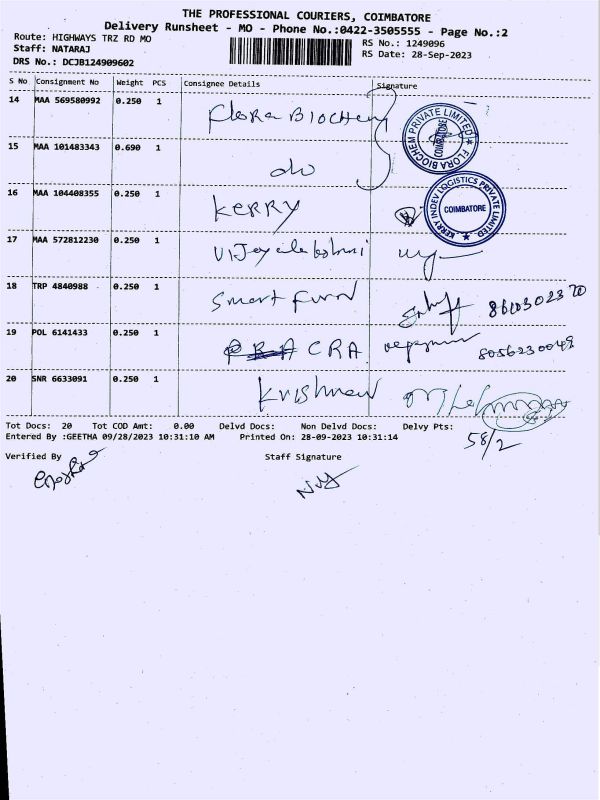 THE PROFESSIONAL COURIERS, COIMBATORE
Delivery Runsheet - MO - Phone No.:0422-3505555 - Page No.:2
Route: HIGHWAYS TRZ RD MO
RS No.: 1249096
Staff: NATARAJ
RS Date: 28-Sep-2023
DRS No.: DCJB124909602
S No Consignment No Weight PCS Consignee Details Signature
14 MAA 569580992 0.250 1 Flora Biochem
FLORA BIOCHEM PRIVATE LIMITED ★ COIMBATORE
15 MAA 101483343 0.690 1 do
16 MAA 104408355 0.250 1 KERRY
KERRY INDEV LOGISTICS PRIVATE LIMITED ★ COIMBATORE
17 MAA 572812230 0.250 1
18 TRP 4840988 0.250 1 Smart Fund
19 POL 6141433 0.250 1 CRA 8056230049
20 SNR 6633091 0.250 1 Krishnan
Tot Docs: 20 Tot COD Amt: 0.00 Delvd Docs: Non Delvd Docs: Delvy Pts:
58/2
Entered By :GEETHA 09/28/2023 10:31:10 AM Printed On: 28-09-2023 10:31:14
Verified By Staff Signature